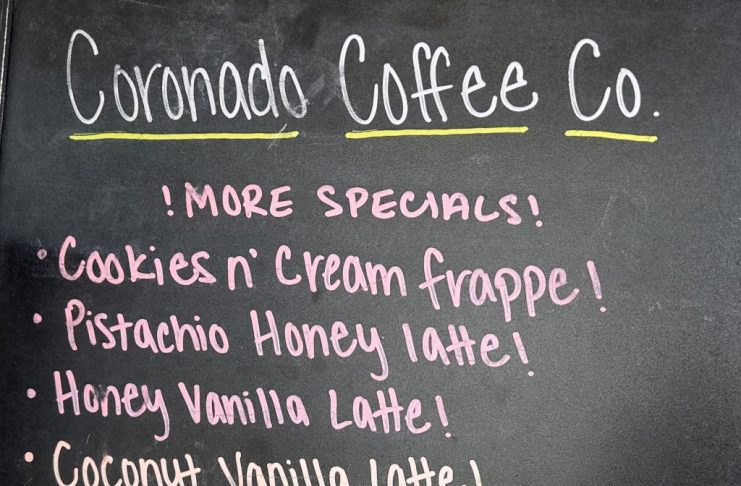 Coronado Coffee Co.
!MORE SPECIALS!
• Cookies n' Cream frappe!
• Pistachio Honey latte!
• Honey Vanilla Latte!
• Coconut Vanilla latte!